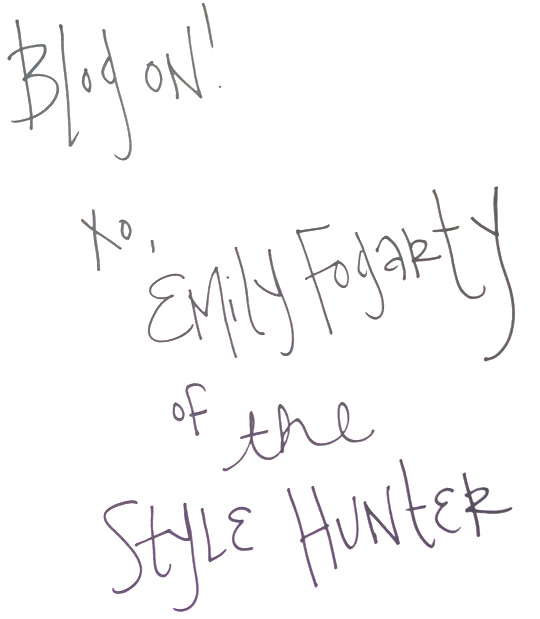 Blog ON!
xo,
Emily Fogarty
of the
Style Hunter